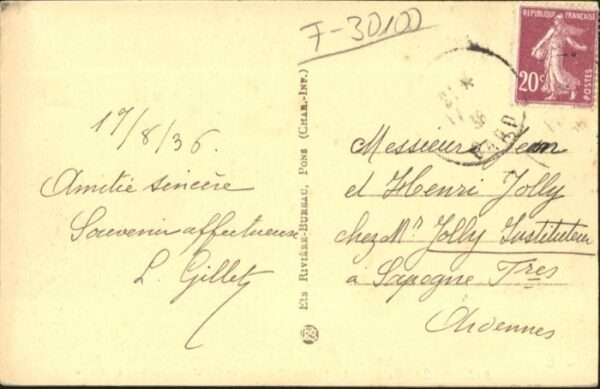 F-30100
RÉPUBLIQUE FRANÇAISE
20c
POSTES
17/8/36.
Amitié sincère
Souvenir affectueuse
L. Gillet
Ets RIVIÈRE-BUREAU, PONS (CHAR.-INF.)
Messieurs Jean
et Henri Jolly
chez Mr Jolly Instituteur
à Sapogne Tres
Ardennes